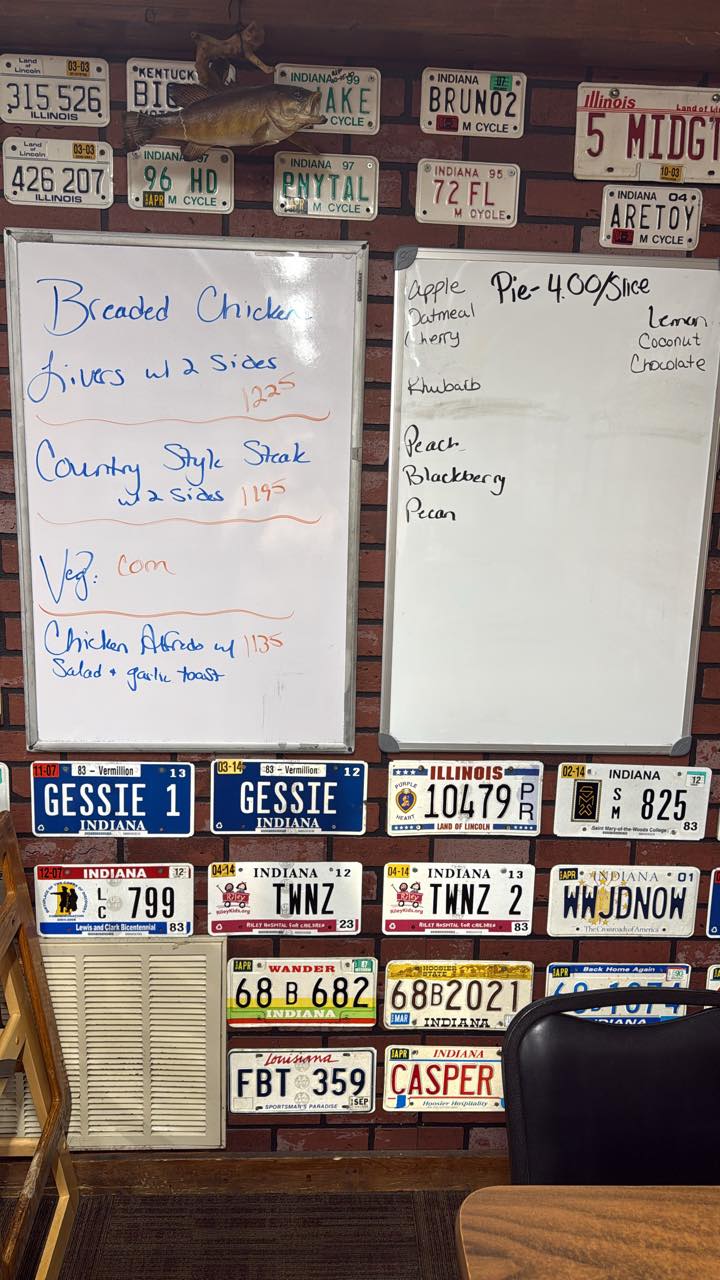 Land of Lincoln 03-03
315 526
ILLINOIS
KENTUCK
BIG
INDIANA 99
AKE
M CYCLE
INDIANA 07
BRUNO2
M CYCLE
Illinois Land of Li
5 MIDGT
10-03
Land of Lincoln 03-03
426 207
ILLINOIS
INDIANA 97
96 HD
APR M CYCLE
INDIANA 97
PNYTAL
APR M CYCLE
INDIANA 95
72 FL
M CYCLE
INDIANA 04
ARETOY
M CYCLE
Breaded Chicken
Livers w/ 2 Sides
1225
Country Style Steak
w/ 2 Sides 1195
Veg: Corn
Chicken Alfredo w/ 1135
Salad + garlic toast
Pie- 4.00/Slice
Apple
Oatmeal
Cherry
Rhubarb
Peach
Blackberry
Pecan
Lemon
Coconut
Chocolate
11-07 83 - Vermillion 13
GESSIE 1
INDIANA
03-14 83 - Vermillion 12
GESSIE
INDIANA
ILLINOIS
PURPLE HEART 10479 PR
LAND OF LINCOLN
02-14 INDIANA 12
SM 825
Saint Mary-of-the-Woods College 83
12-07 INDIANA 12
LC 799
Lewis and Clark Bicentennial 83
04-14 INDIANA 12
Riley TWNZ
RileyKids.org
RILEY HOSPITAL FOR CHILDREN 23
04-14 INDIANA 13
Riley TWNZ 2
RileyKids.org
RILEY HOSPITAL FOR CHILDREN 83
APR INDIANA 01
WWJDNOW
The Crossroads of America
APR WANDER 87
68 B 682
INDIANA
HOOSIER STATE
68B2021
MAR INDIANA
APR Back Home Again 90
INDIANA
Louisiana
FBT 359
SPORTSMAN'S PARADISE SEP
APR INDIANA
CASPER
Hoosier Hospitality